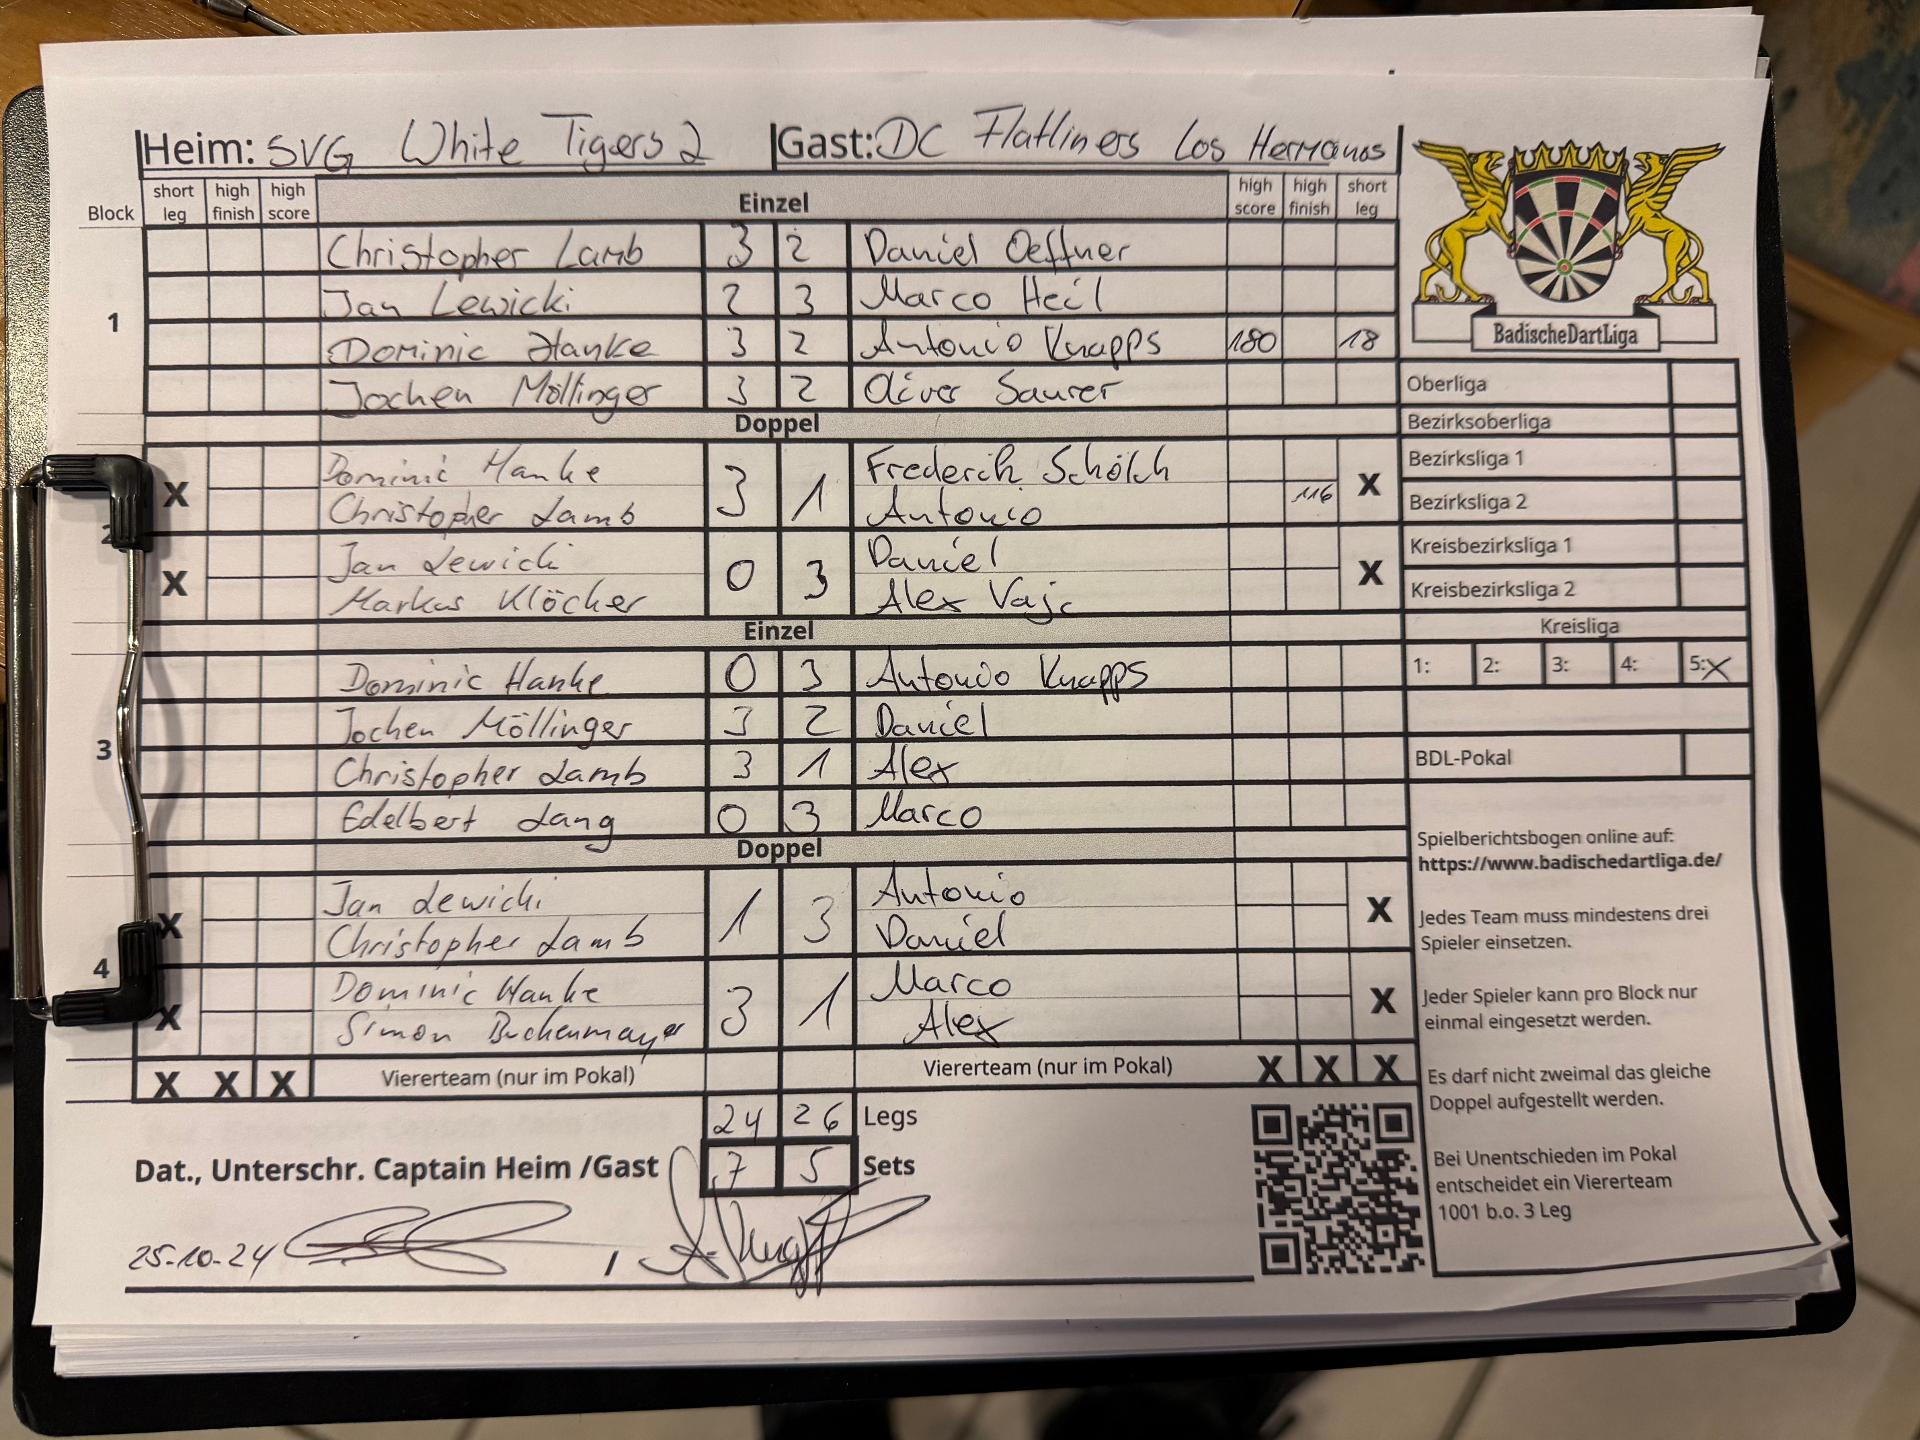 Heim: SVG White Tigers 2 Gast: DC Flatliners Los Hermanos
Block short leg high finish high score Einzel high score high finish short leg
1
Christopher Lamb 3 2 Daniel Oeffner
Jan Lewicki 2 3 Marco Heil
Dominic Hanke 3 2 Antonio Knapps 180 18
Jochen Möllinger 3 2 Oliver Saurer
Doppel
2
Dominic Hanke Frederik Schölch
X 3 1 116 X
Christopher Lamb Antonio
Jan Lewicki Daniel
X 0 3 X
Markus Klöcher Alex Vajc
Einzel
3
Dominic Hanke 0 3 Antonio Knapps
Jochen Möllinger 3 2 Daniel
Christopher Lamb 3 1 Alex
Edelbert Lang 0 3 Marco
Doppel
4
Jan Lewicki Antonio
X 1 3 X
Christopher Lamb Daniel
Dominic Hanke Marco
X 3 1 X
Simon Buchenmayer Alex
X X X Viererteam (nur im Pokal) Viererteam (nur im Pokal) X X X
24 26 Legs
Dat., Unterschr. Captain Heim /Gast 7 5 Sets
25.10.24
BadischeDartLiga
Oberliga
Bezirksoberliga
Bezirksliga 1
Bezirksliga 2
Kreisbezirksliga 1
Kreisbezirksliga 2
Kreisliga
1: 2: 3: 4: 5: X
BDL-Pokal
Spielberichtsbogen online auf:
https://www.badischedartliga.de/
Jedes Team muss mindestens drei
Spieler einsetzen.
Jeder Spieler kann pro Block nur
einmal eingesetzt werden.
Es darf nicht zweimal das gleiche
Doppel aufgestellt werden.
Bei Unentschieden im Pokal
entscheidet ein Viererteam
1001 b.o. 3 Leg